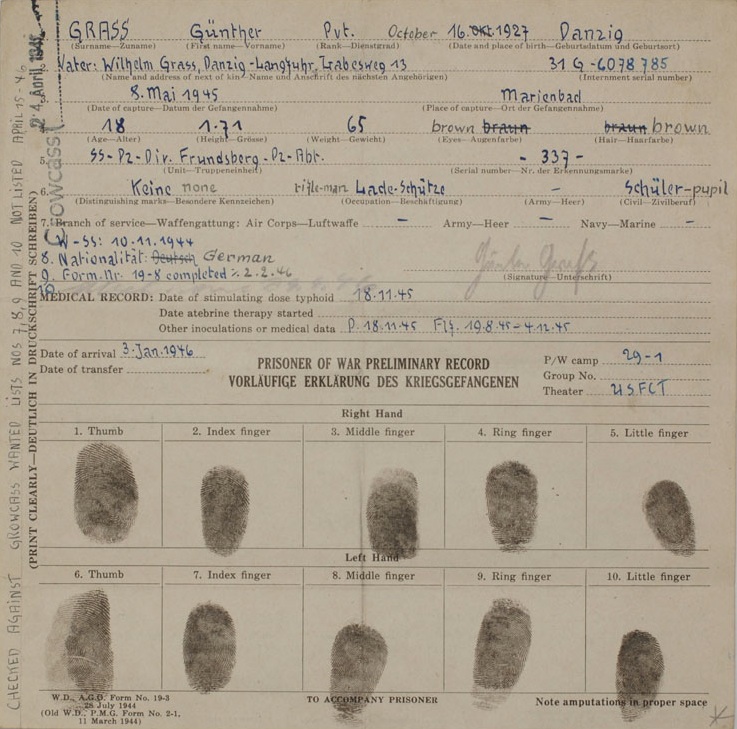 GRASS Günther Pvt. October 16.Okt.1927 Danzig
(Surname—Zuname) (First name—Vorname) (Rank—Dienstgrad) (Date and place of birth—Geburtsdatum und Geburtsort)
Vater: Wilhelm Grass, Danzig-Langfuhr, Labesweg 13 31 G-6078 785
(Name and address of next of kin—Name und Anschrift des nächsten Angehörigen) (Internment serial number)
8. Mai 1945 Marienbad
(Date of capture—Datum der Gefangennahme) (Place of capture—Ort der Gefangennahme)
18 1.71 65 brown braun braun brown
(Age—Alter) (Height—Grösse) (Weight—Gewicht) (Eyes—Augenfarbe) (Hair—Haarfarbe)
5. SS-Pz-Div. Frundsberg-Pz-Abt. - 337 -
(Unit—Truppeneinheit) (Serial number—Nr. der Erkennungsmarke)
6. Keine none rifle-man Lade-Schütze – Schüler-pupil
(Distinguishing marks—Besondere Kennzeichen) (Occupation—Beschäftigung) (Army—Heer) (Civil—Zivilberuf)
7. Branch of service—Waffengattung: Air Corps—Luftwaffe – Army—Heer – Navy—Marine –
W-SS: 10.11.1944
8. Nationalität: Deutsch German
9. Form.Nr. 19-8 completed 2.2.46
Günter Graß
(Signature—Unterschrift)
10.
MEDICAL RECORD: Date of stimulating dose typhoid 18.11.45
Date atebrine therapy started
Other inoculations or medical data P. 18.11.45 Flf. 19.8.45-4.12.45
Date of arrival 3.Jan.1946
Date of transfer
PRISONER OF WAR PRELIMINARY RECORD
VORLÄUFIGE ERKLÄRUNG DES KRIEGSGEFANGENEN
P/W camp 29-1
Group No.
Theater USFCT
Right Hand
1. Thumb 2. Index finger 3. Middle finger 4. Ring finger 5. Little finger
Left Hand
6. Thumb 7. Index finger 8. Middle finger 9. Ring finger 10. Little finger
W.D., A.G.O. Form No. 19-3
28 July 1944
(Old W.D., P.M.G. Form No. 2-1,
11 March 1944)
TO ACCOMPANY PRISONER
Note amputations in proper space
CHECKED AGAINST GROWCASS WANTED LISTS NOS 7,8,9 AND 10 NOT LISTED APRIL 15-46
(PRINT CLEARLY—DEUTLICH IN DRUCKSCHRIFT SCHREIBEN)
Growcass
24. April 1946